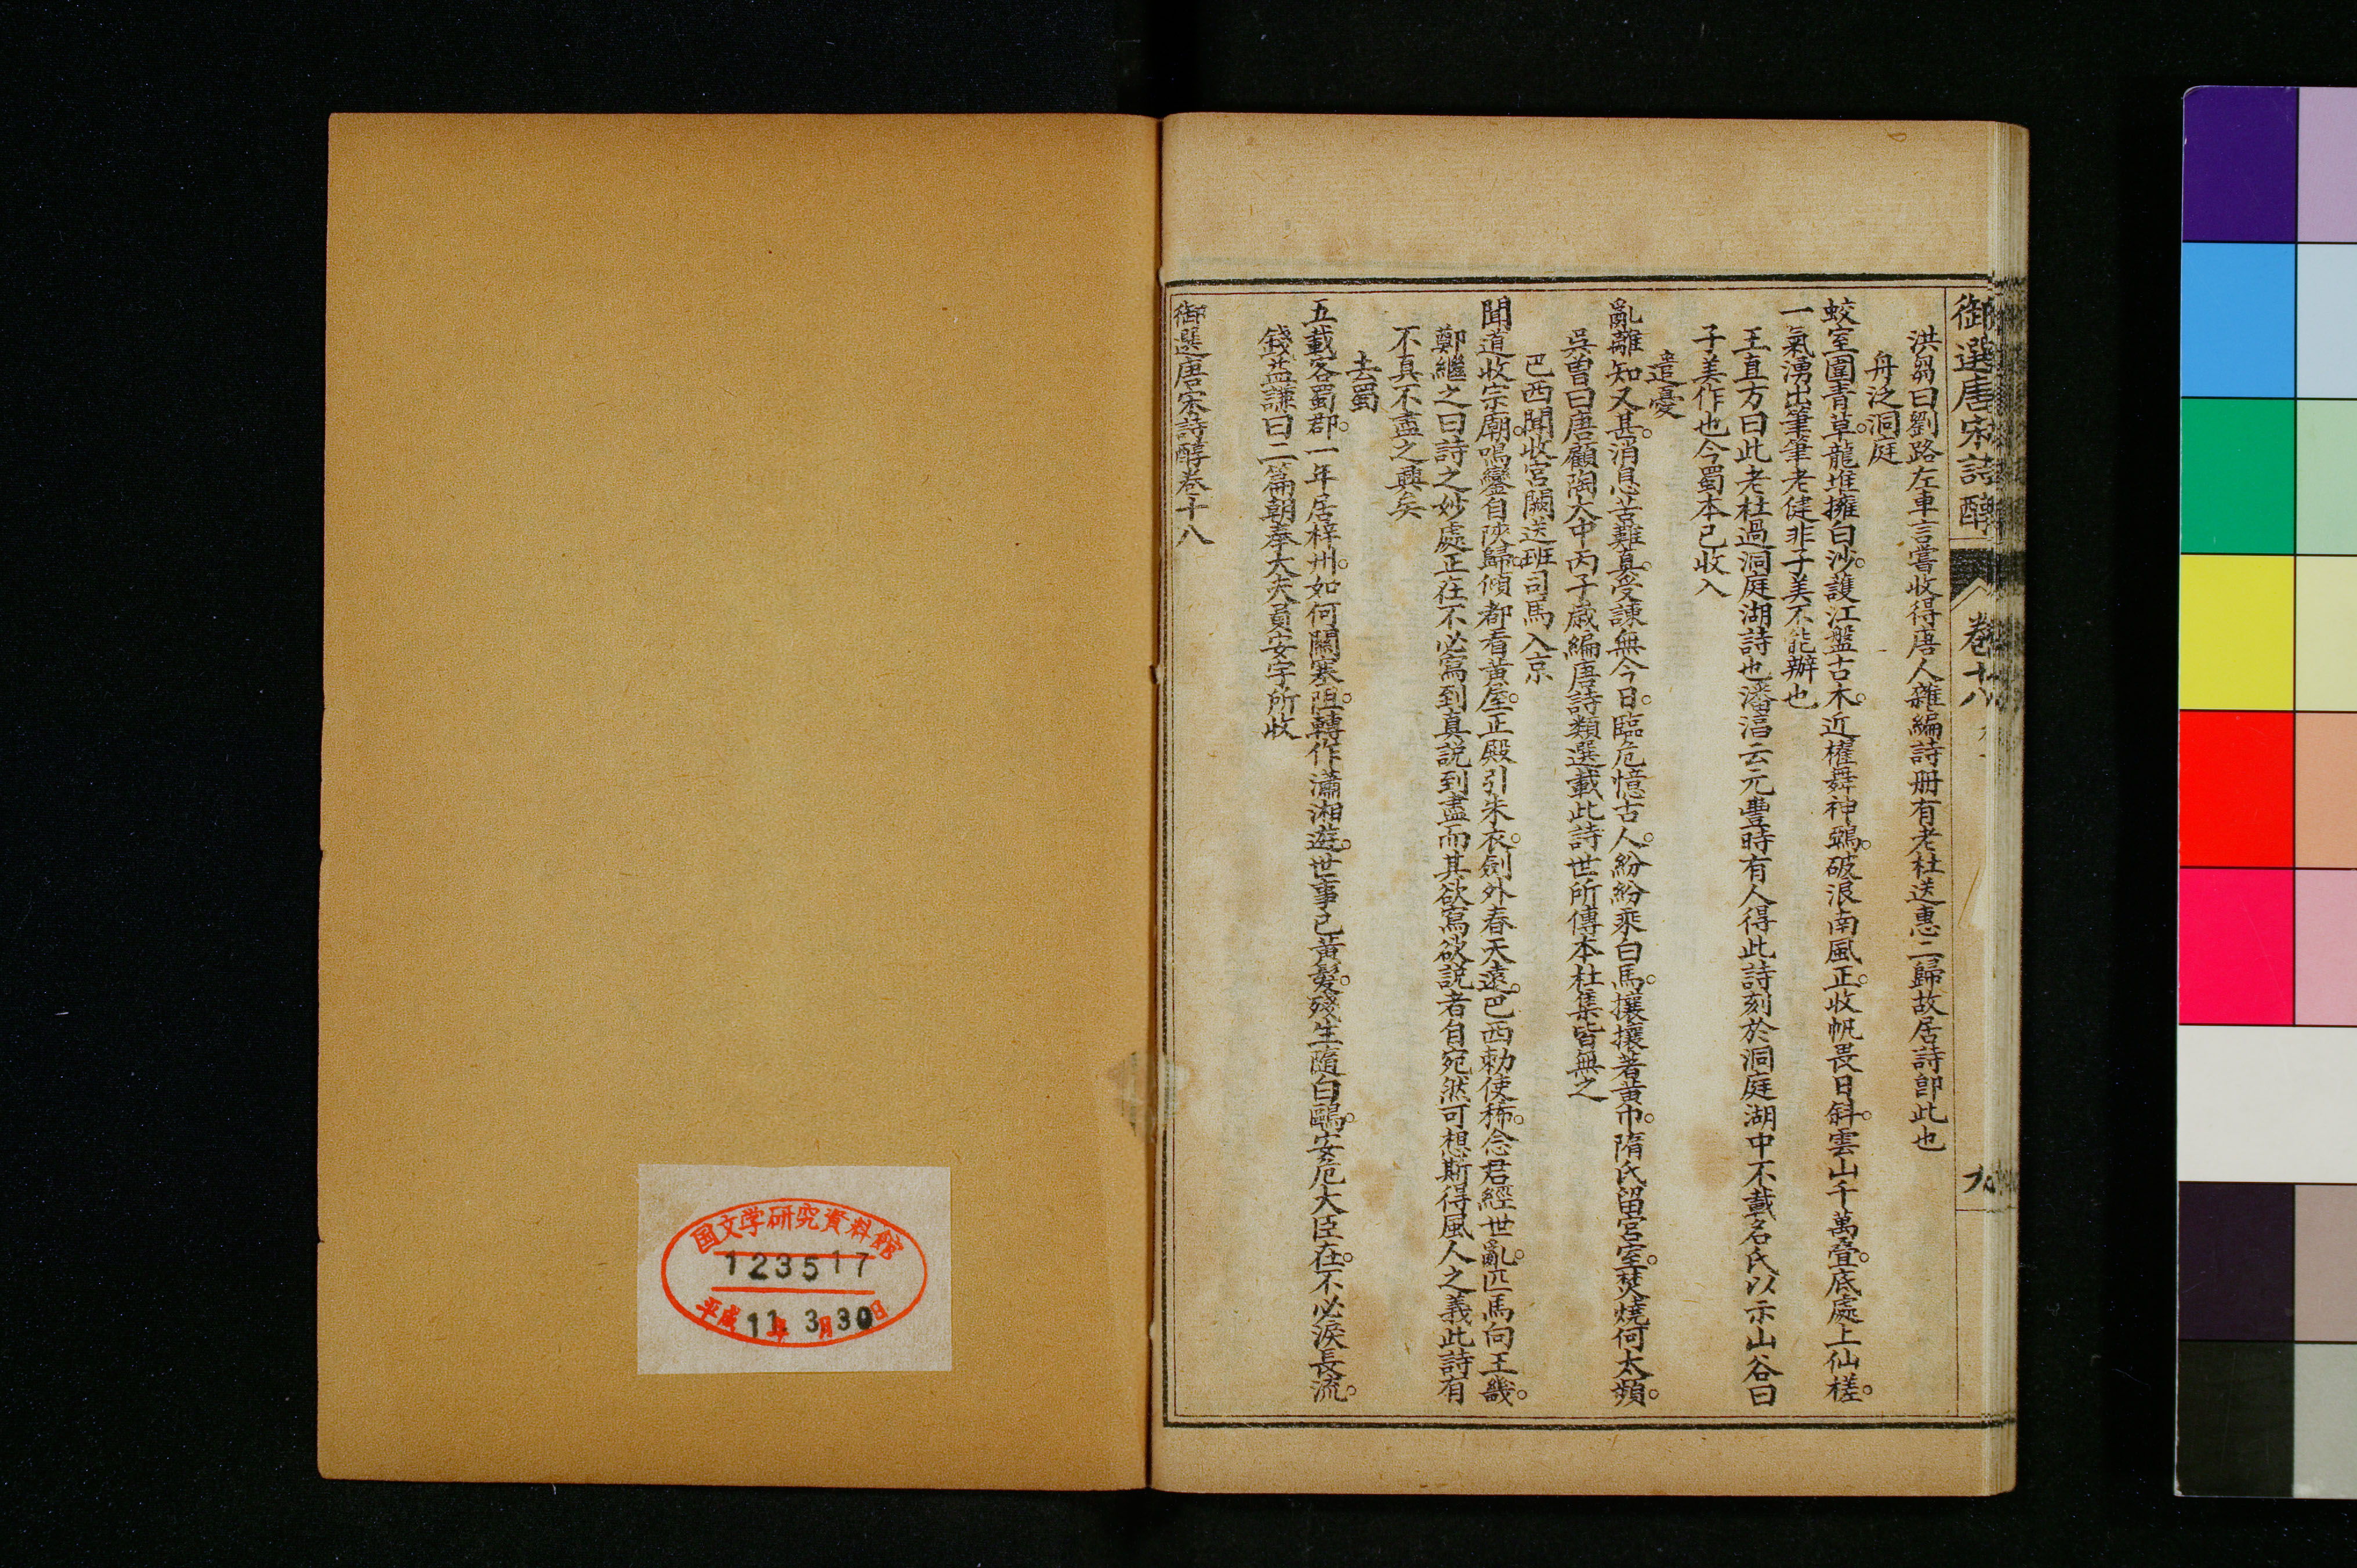 御選唐宋詩醇
卷十八
九
洪芻曰劉路左車言嘗收得唐人雜編詩册有老杜送惠二歸故居詩卽此也
舟泛洞庭
蛟室圍青草。龍堆擁白沙。護江盤古木。近櫂舞神鴉。破浪南風正。收帆畏日斜。雲山千萬疊。底處上仙槎。
一氣湧出筆筆老健非子美不能辦也
王直方曰此老杜過洞庭湖詩也潘淳云元豐時有人得此詩刻於洞庭湖中不載名氏以示山谷曰
子美作也今蜀本已收入
遣憂
亂離知又甚。消息苦難真。受諫無今日。臨危憶古人。紛紛乘白馬。攘攘著黃巾。隋氏留宮室。焚燒何太頻。
吳曾曰唐顧陶大中丙子歲編唐詩類選載此詩世所傳本杜集皆無之
巴西聞收宮闕送班司馬入京
聞道收宗廟。鳴鑾自陝歸。傾都看黃屋。正殿引朱衣。劍外春天遠。巴西勅使稀。念君經世亂。匹馬向王畿。
鄭繼之曰詩之妙處正在不必寫到真說到盡而其欲寫欲說者自宛然可想斯得風人之義此詩有
不真不盡之興矣
去蜀
五載客蜀郡。一年居梓州。如何關塞阻。轉作瀟湘遊。世事已黃髮。殘生隨白鷗。安危大臣在。不必淚長流。
錢益謙曰二篇朝奉大夫員安宇所收
御選唐宋詩醇卷十八
国文学研究資料館
123517
平成11年3月30日